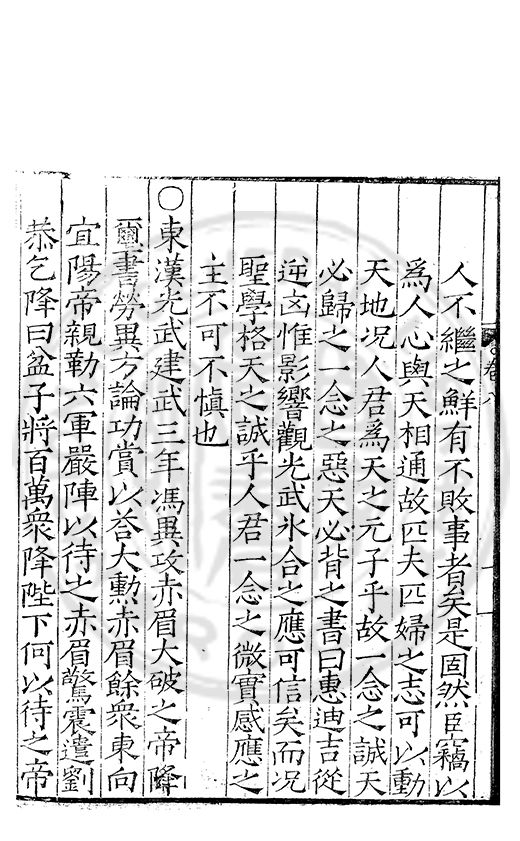 人不繼之鮮有不敗事者矣是固然臣竊以
為人心與天相通故匹夫匹婦之志可以動
天地况人君爲天之元子乎故一念之誠天
必歸之一念之惡天必背之書曰惠迪吉從
逆凶惟影響觀光武氷合之應可信矣而况
聖學格天之誠乎人君一念之微實感應之
主不可不愼也
〇東漢光武建武三年馮異攻赤眉大破之帝降
璽書勞異方論功賞以荅大勲赤眉餘衆東向
宜陽帝親勒六軍嚴陣以待之赤眉驚震遣劉
恭乞降曰盆子將百萬衆降陛下何以待之帝
卷八